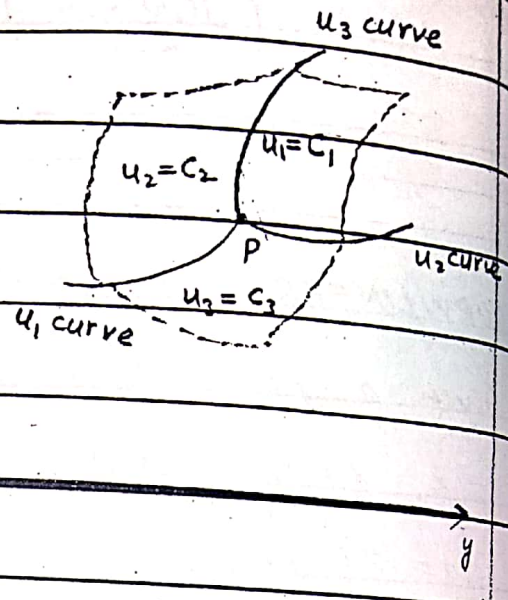 u₃ curve
u₁ = C₁
u₂ = C₂
P
u₂ curve
u₃ = C₃
u₁ curve
y